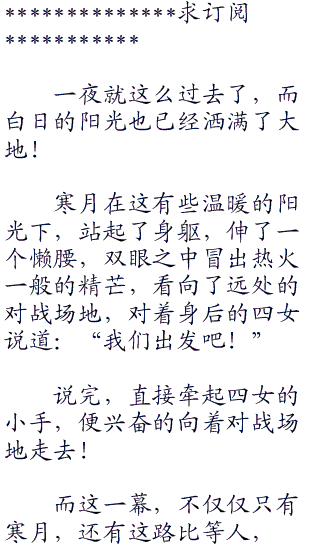 **************求订阅
***********
一夜就这么过去了，而
白日的阳光也已经洒满了大
地！
寒月在这有些温暖的阳
光下，站起了身躯，伸了一
个懒腰，双眼之中冒出热火
一般的精芒，看向了远处的
对战场地，对着身后的四女
说道：“我们出发吧！”
说完，直接牵起四女的
小手，便兴奋的向着对战场
地走去！
而这一幕，不仅仅只有
寒月，还有这路比等人，